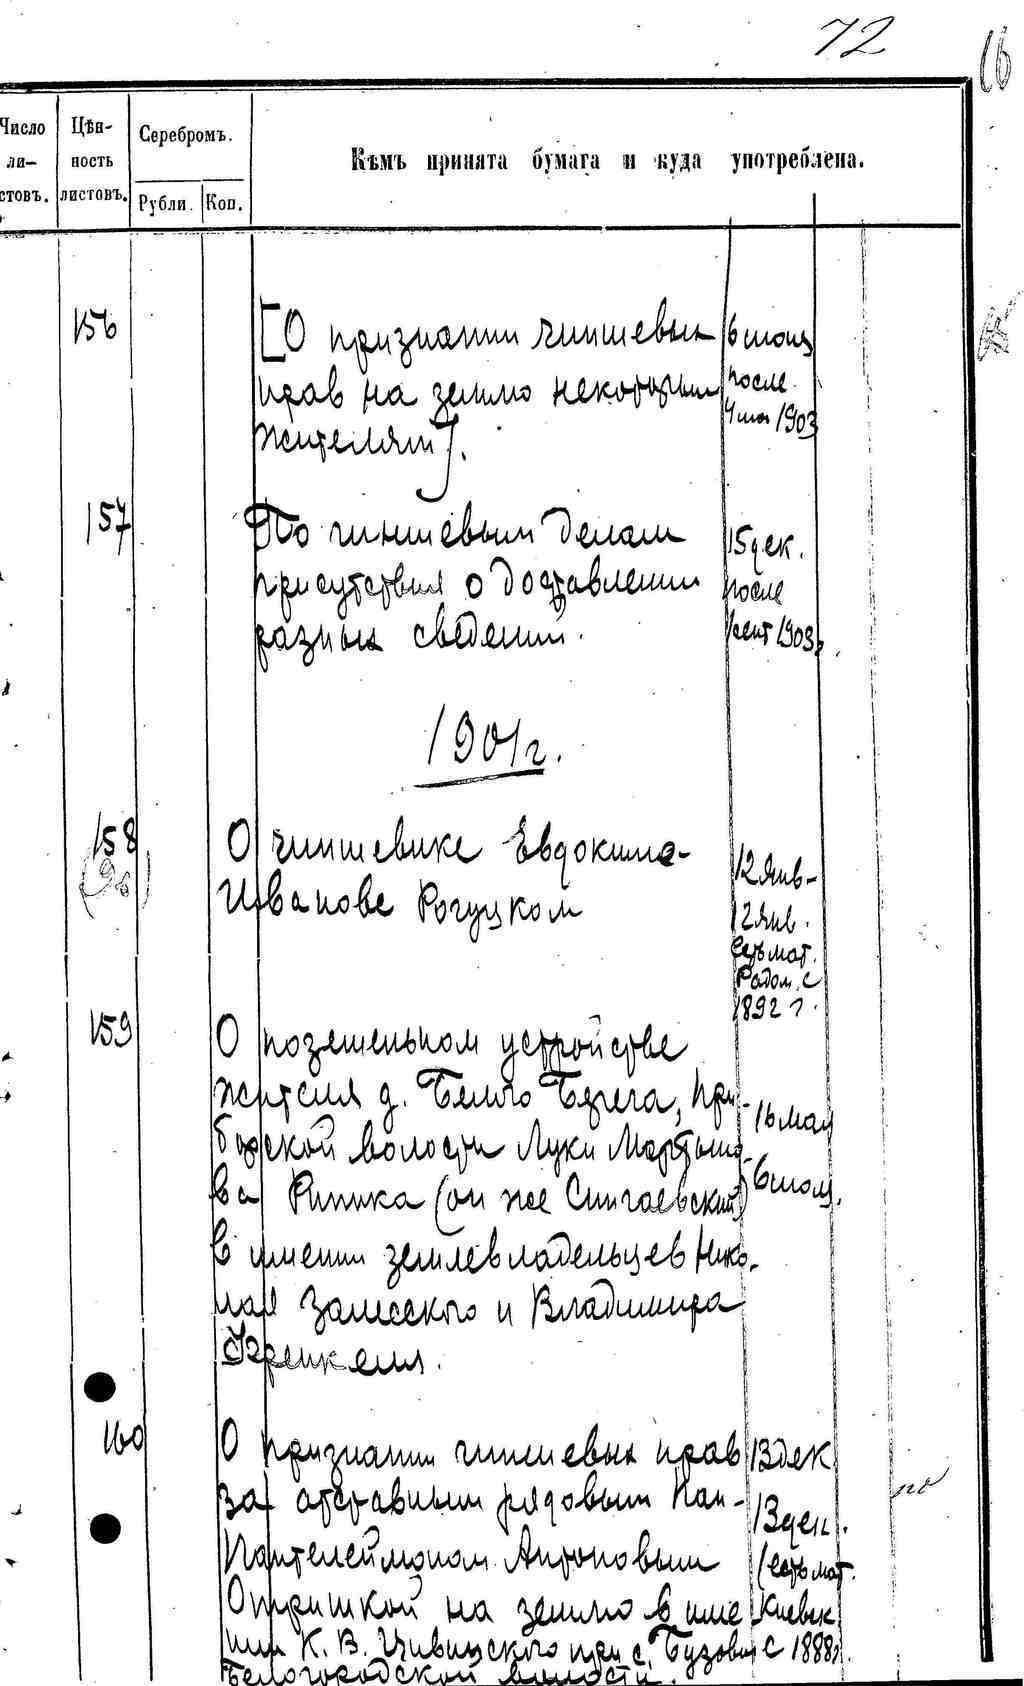 72
16
Число листовъ.
Цѣнность листовъ.
Серебромъ.
Рубли. Коп.
Кѣмъ принята бумага и куда употреблена.
156
[О признании чиншевых
прав на землю некоторым
жителям].
6 июля
после
4 июл 1903
157
По чиншевым делам
присутствия о доставлении
разных сведений.
15 дек.
после
1 сент 1903г.
1901г.
158
О чиншевике Евдокиме
Иванове Рогуцком
12 Янв-
12 Янв.
Есть мат.
Радом. с
1892 г.
159
О поземельном устройстве
жителя д. Белого Берега, При-
борской волости Луки Мартыно-
ва Рипика (он же Сингаевский)
в имении землевладельцев Нико-
лая Залесского и Владимира
Френкеля.
16 мая
6 июля.
160
О признании чиншевых прав
за отставным рядовым Пан-
Пантелеймоном Антоновым
Отришкой на землю в име
нии К. В. Чивинского при с. Бузова
Белогородской волости.
13 дек
13 дек.
(есть мат.
Киевск
с 1888г.
по